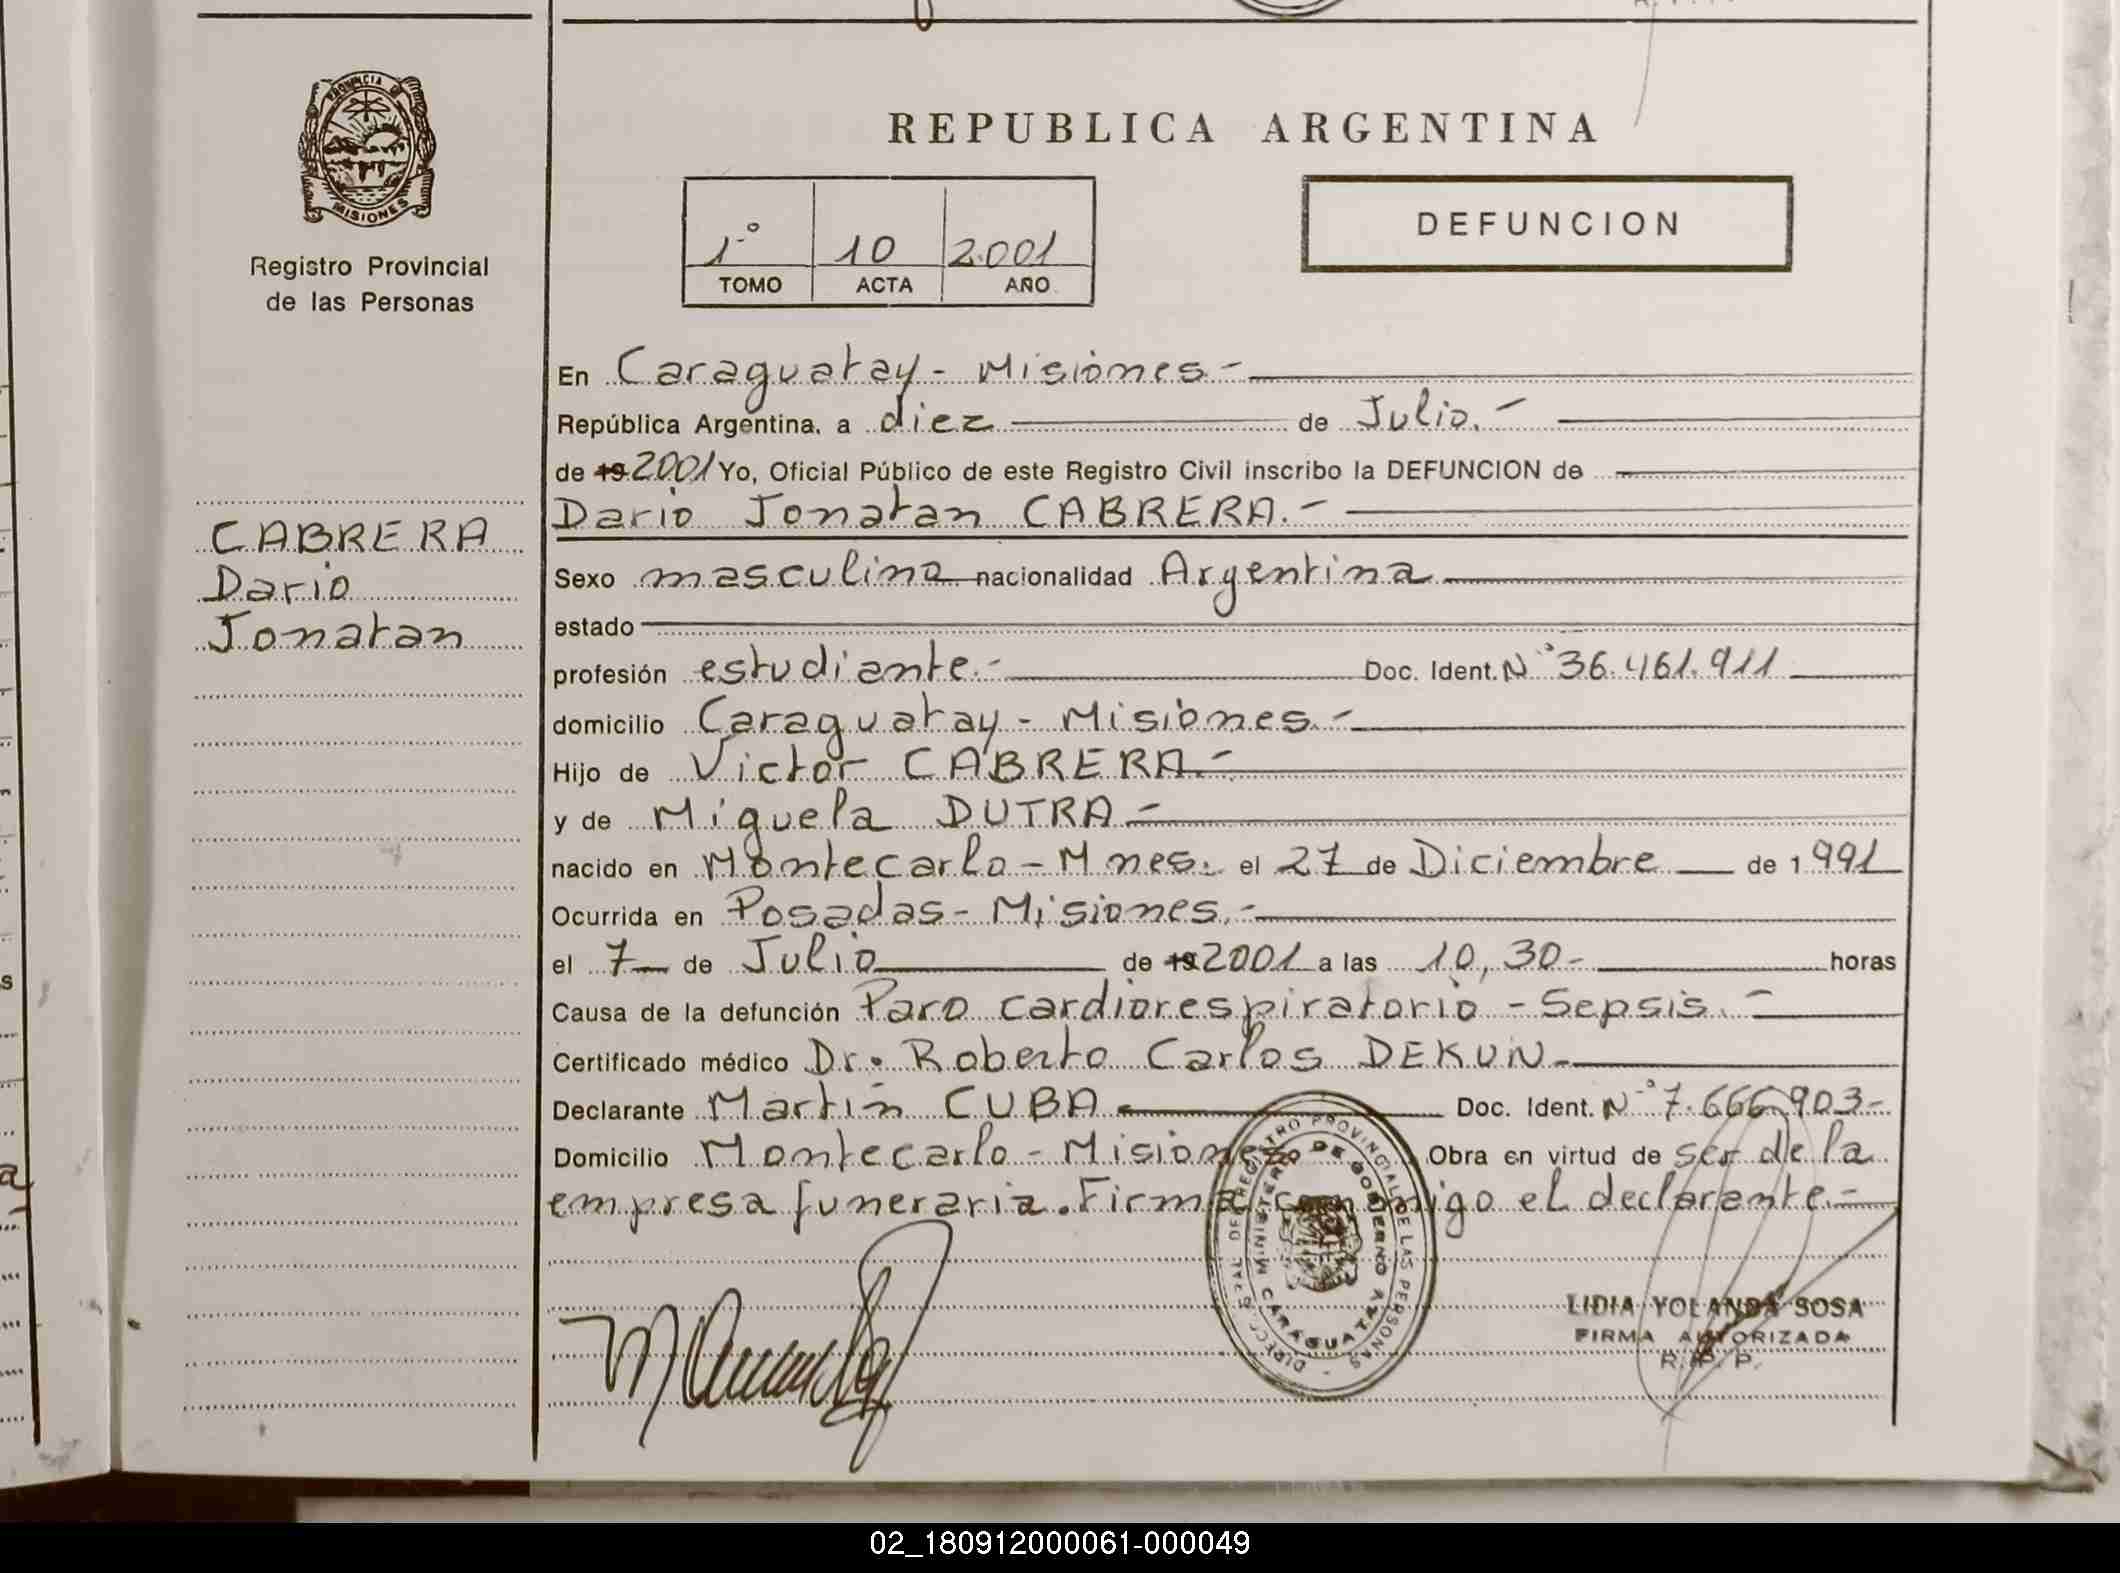 REPUBLICA ARGENTINA
PROVINCIA DE
MISIONES
Registro Provincial
de las Personas
1º 10 2.001
TOMO ACTA AÑO
DEFUNCION
CABRERA
Dario
Jonatan
En Caraguatay - Misiones -
República Argentina, a diez de Julio. -
de 19 2001 Yo, Oficial Público de este Registro Civil inscribo la DEFUNCION de
Dario Jonatan CABRERA. -
Sexo masculino nacionalidad Argentina
estado
profesión estudiante. - Doc. Ident. Nº 36.461.911
domicilio Caraguatay - Misiones. -
Hijo de Victor CABRERA. -
y de Miguela DUTRA -
nacido en Montecarlo - Mnes. el 27 de Diciembre de 1991
Ocurrida en Posadas - Misiones. -
el 7 de Julio de 19 2001 a las 10,30 - horas
Causa de la defunción Paro cardiorespiratorio - Sepsis. -
Certificado médico Dr. Roberto Carlos DEKUN -
Declarante Martín CUBA Doc. Ident. Nº 7.666.903 -
Domicilio Montecarlo - Misiones Obra en virtud de ser de la
empresa funeraria. Firma conmigo el declarante. -
DIRECC. GRAL DEL REGISTRO PROVINCIAL DE LAS PERSONAS
MINISTERIO DE GOBIERNO
CARAGUATAY
LIDIA YOLANDA SOSA
FIRMA AUTORIZADA
R. P. P.
02_180912000061-000049